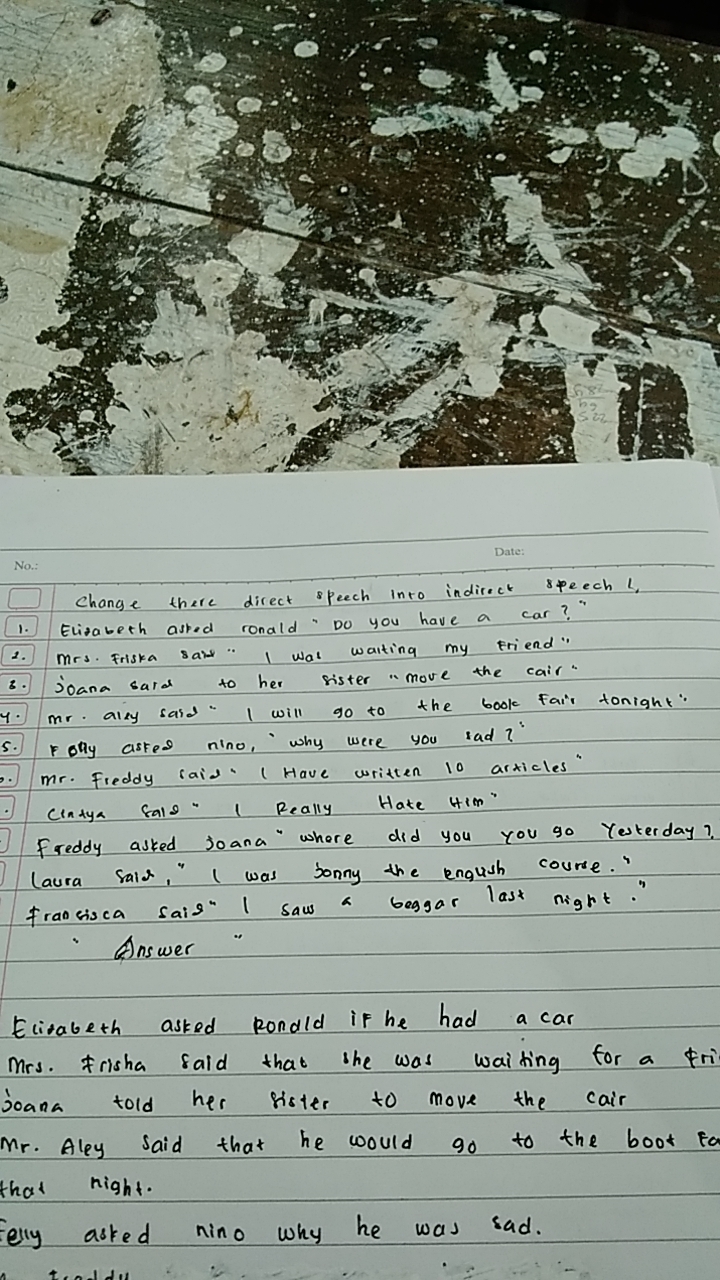 No.:
Date:
Change there direct speech into indirect speech !,
1. Elizabeth asked ronald " Do you have a car ? "
2. Mrs. Friska saw " I was waiting my Friend "
3. Joana said to her sister " move the cair "
4. mr. aley said " I will go to the book Fair tonight ".
5. Felly asked nino, " why were you sad ? "
mr. Freddy said " I Have written 10 articles "
Cindya said " I Really Hate Him "
Freddy asked Joana " where did you you go Yesterday ?,
Laura Said, " I was Jonny the engush course . "
Fransisca said " I saw a beggar last night . "
" Answer "
Elizabeth asked Ronald if he had a car
Mrs. Frisha said that she was waiting for a Fri
Joana told her sister to move the cair
Mr. Aley said that he would go to the boot Fa
that night.
Felly asked nino why he was sad.
Freddy